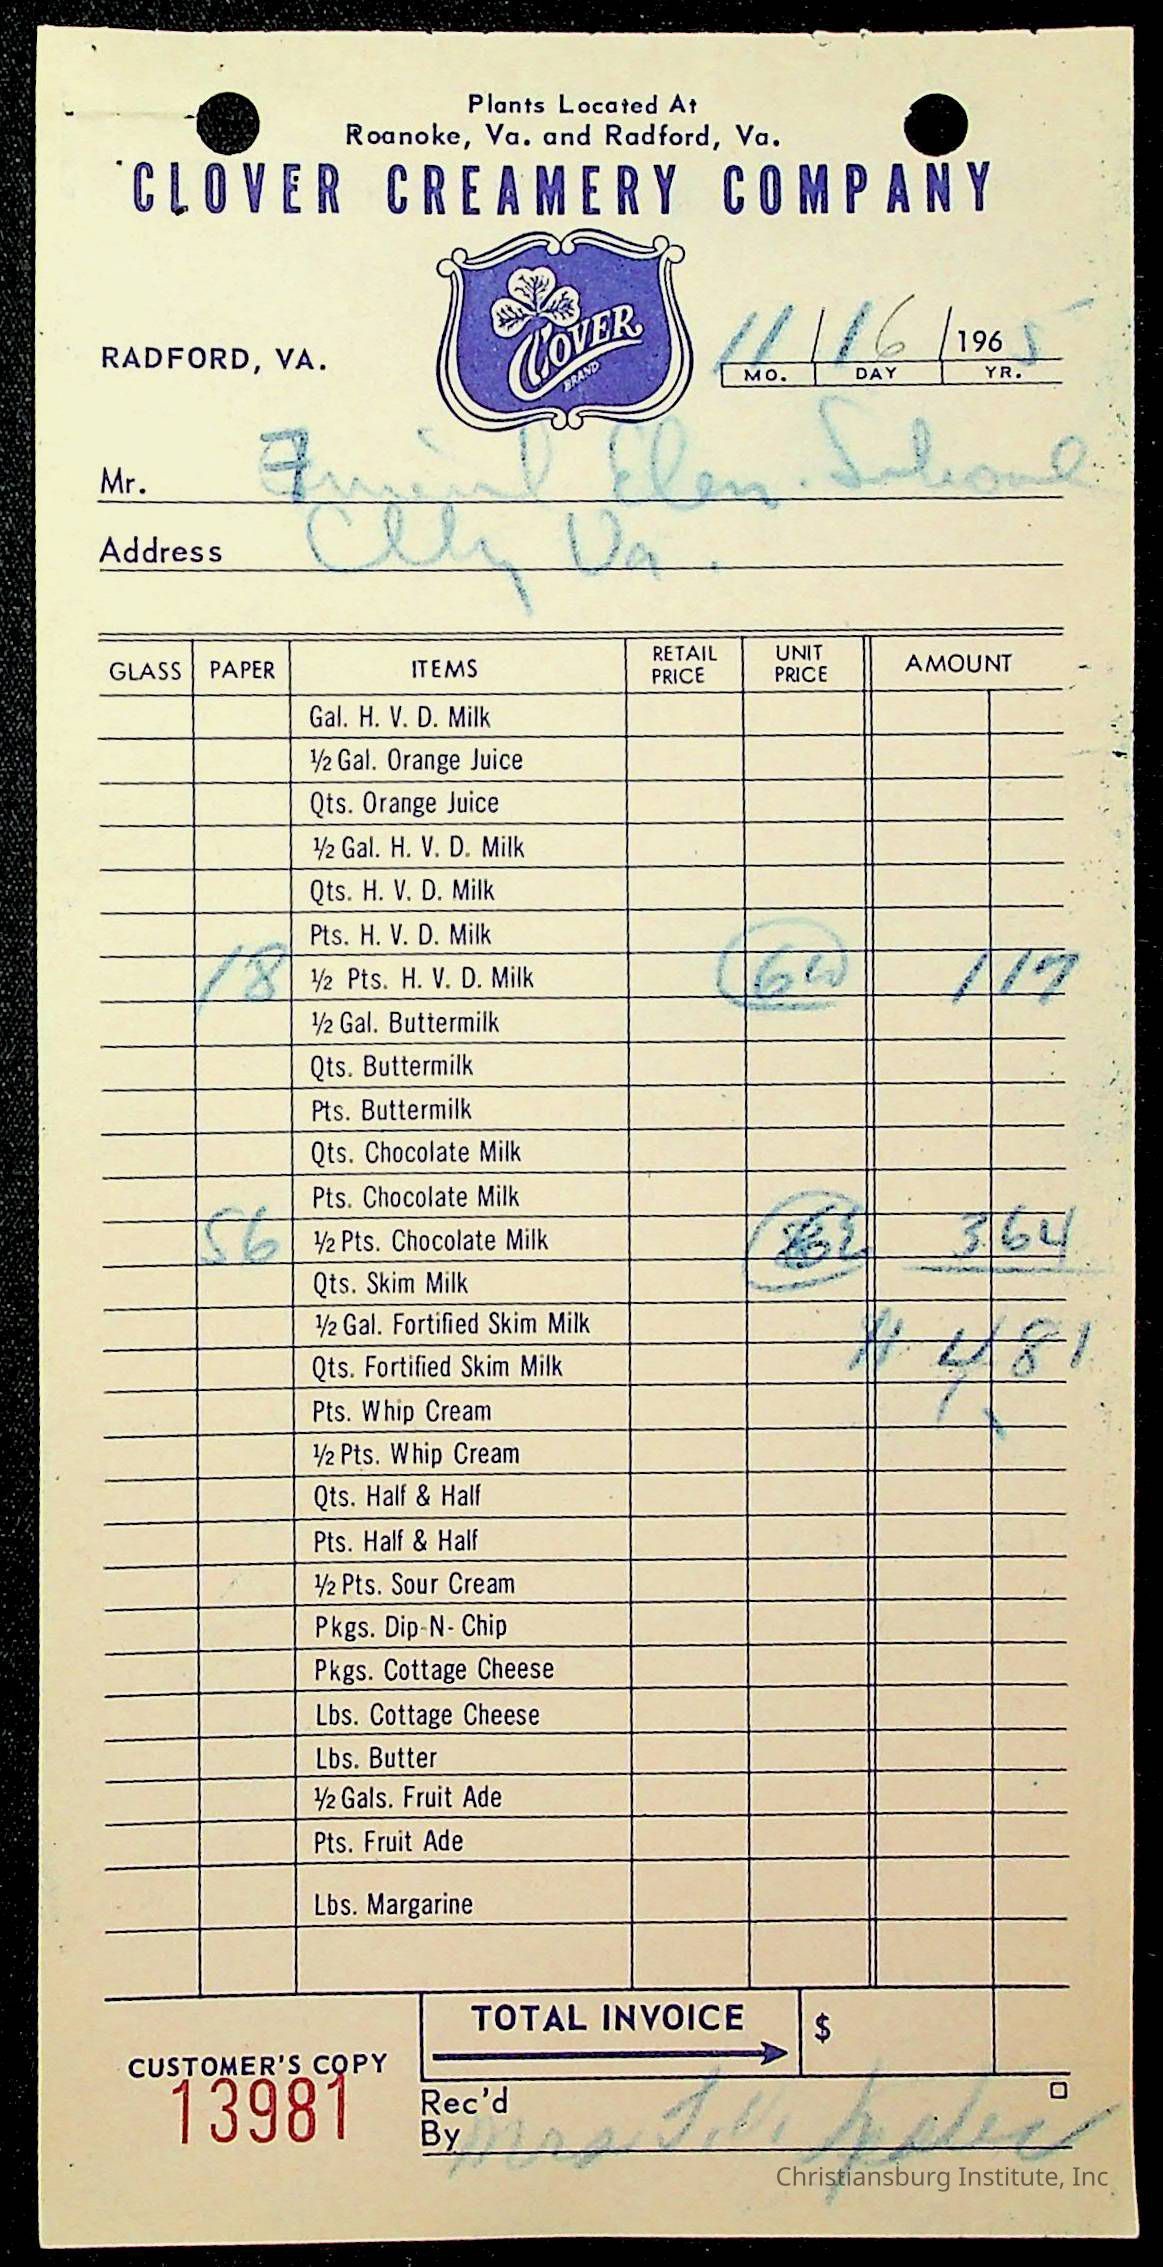 Plants Located At
Roanoke, Va. and Radford, Va.
CLOVER CREAMERY COMPANY
CLOVER
BRAND
RADFORD, VA.
11 / 16 / 196 5
MO. DAY YR.
Mr. Elem. School
Address Va.
GLASS PAPER ITEMS RETAIL PRICE UNIT PRICE AMOUNT
Gal. H. V. D. Milk
½ Gal. Orange Juice
Qts. Orange Juice
½ Gal. H. V. D. Milk
Qts. H. V. D. Milk
Pts. H. V. D. Milk
18 ½ Pts. H. V. D. Milk 1 17
½ Gal. Buttermilk
Qts. Buttermilk
Pts. Buttermilk
Qts. Chocolate Milk
Pts. Chocolate Milk
56 ½ Pts. Chocolate Milk 3 64
Qts. Skim Milk
½ Gal. Fortified Skim Milk
Qts. Fortified Skim Milk 4 81
Pts. Whip Cream
½ Pts. Whip Cream
Qts. Half & Half
Pts. Half & Half
½ Pts. Sour Cream
Pkgs. Dip-N-Chip
Pkgs. Cottage Cheese
Lbs. Cottage Cheese
Lbs. Butter
½ Gals. Fruit Ade
Pts. Fruit Ade
Lbs. Margarine
TOTAL INVOICE $
CUSTOMER'S COPY
13981
Rec'd
By Mrs
Christiansburg Institute, Inc